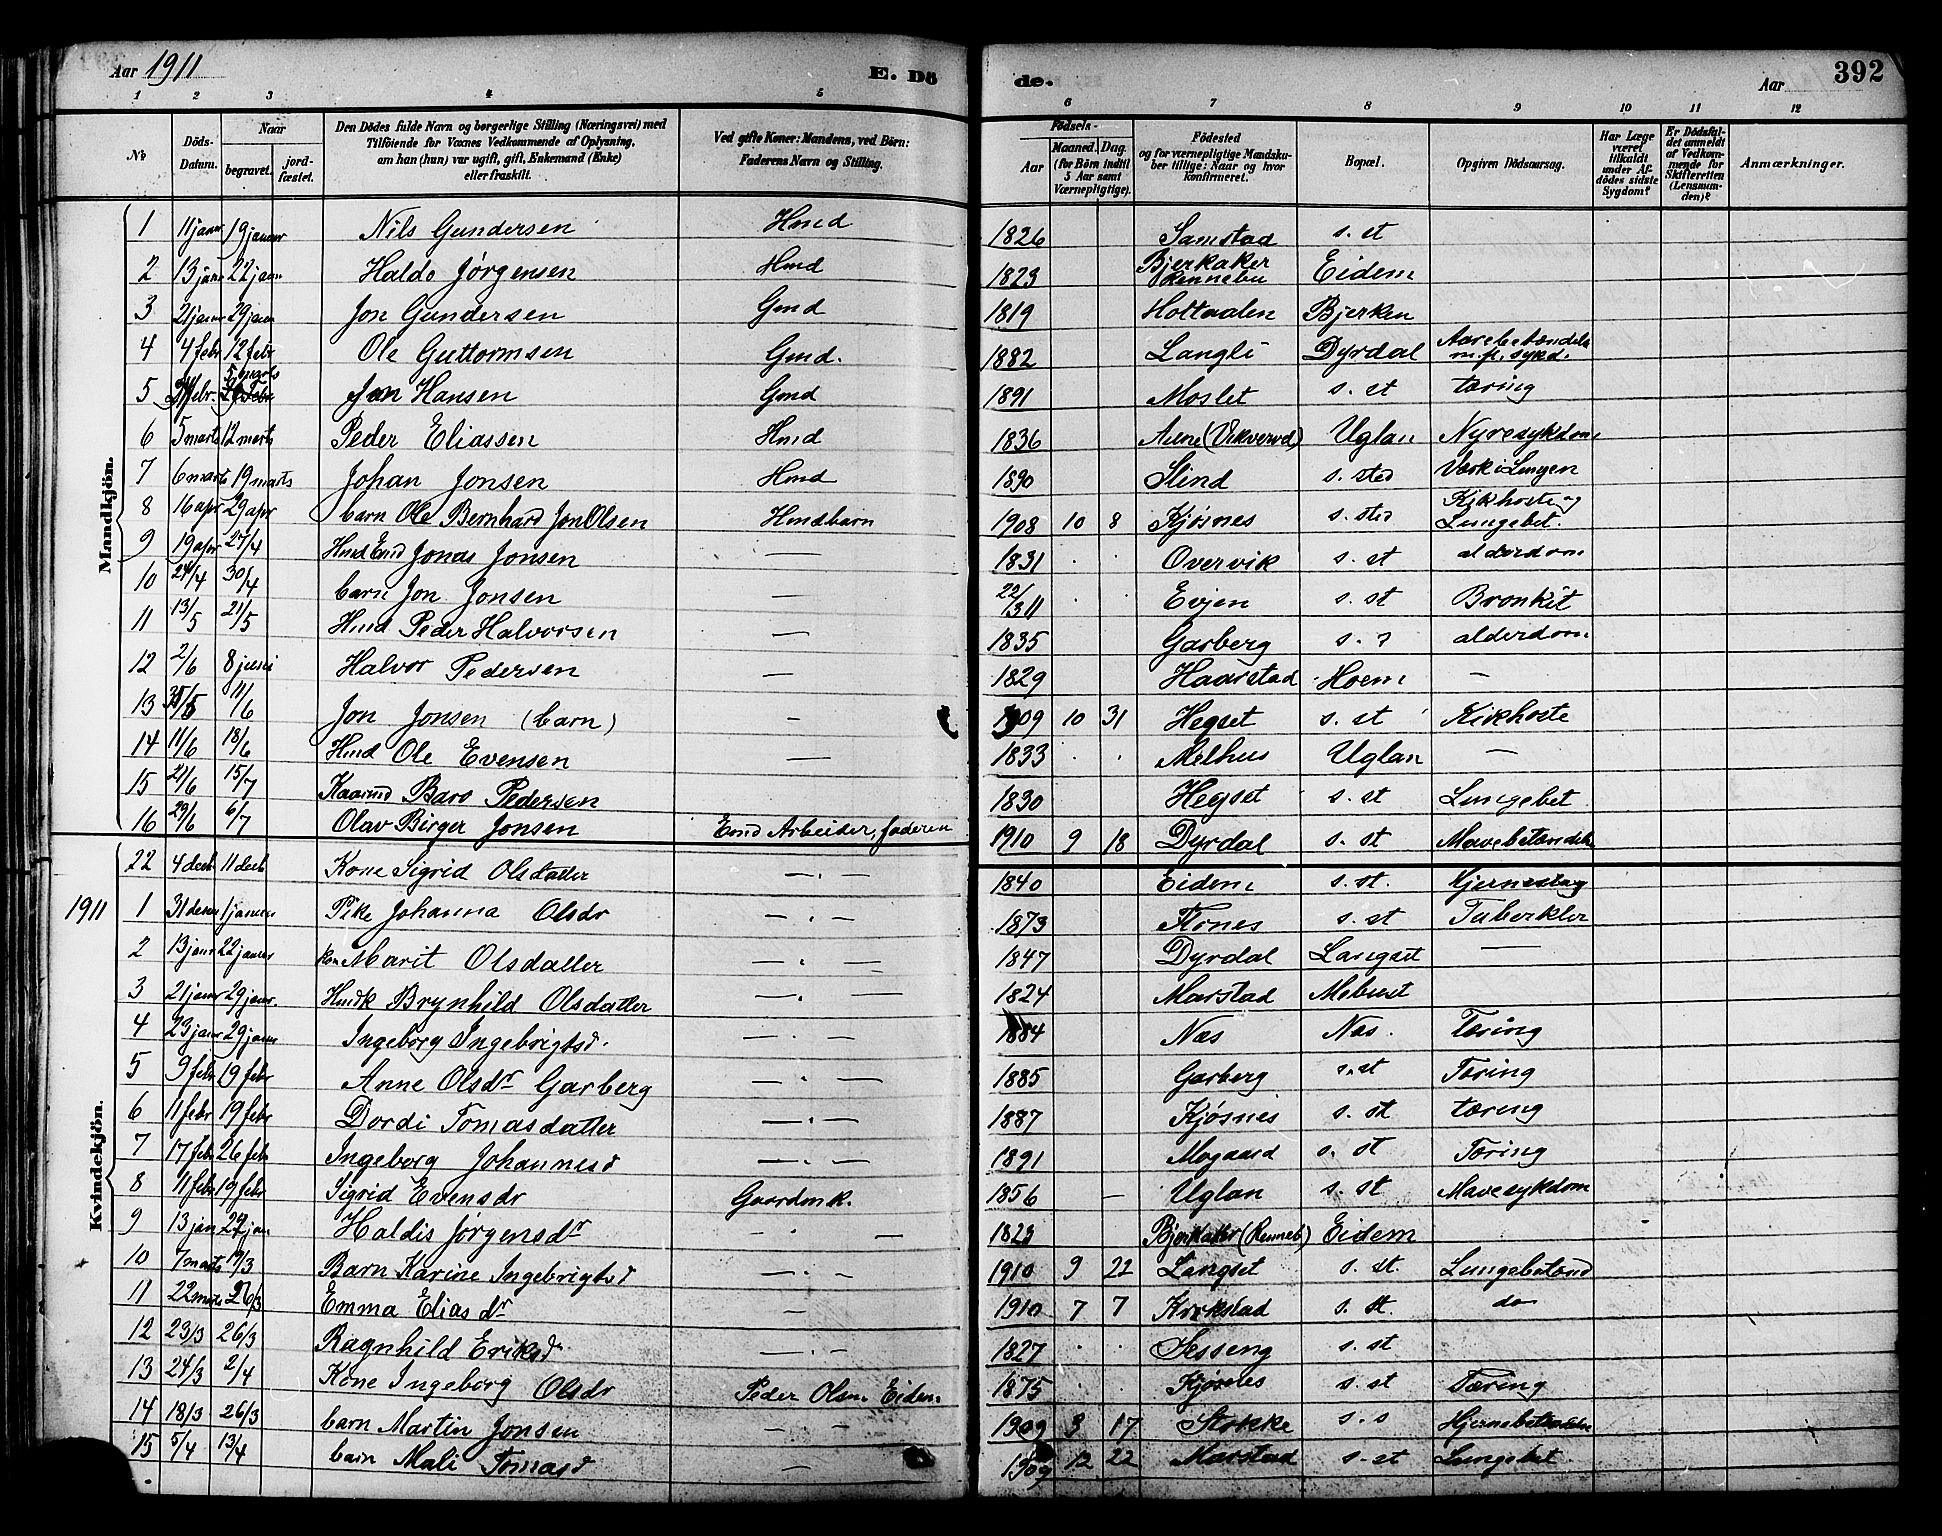 Aar 1911 E. Dö
de. Aar 392
1 2 3 4 5 6 7 8 9 10 11 12
No Döds-Datum. Naar begravet. jordfæstet. Den Dödes fulde Navn og borgerlige Stilling (Næringsvei) med Tilföiende for Voxnes Vedkommende af Oplysning, om han (hun) var ugift, gift, Enkemand (Enke) eller fraskilt. Ved gifte Koner: Mandens, ved Börn: Faderens Navn og Stilling. Födsels- Aar Maaned. Dag. (for Börn indtil 5 Aar samt Værnepligtige). Födested og for værnepligtige Mandskuber tillige: Naar og hvor konfirmeret. Bopæl. Opgiven Dödsaarsag. Har Læge været tilkaldt under Afdödes sidste Sygdom? Er Dödsfaldet anmeldt af Vedkommende for Skifteretten (Lensmanden)? Anmærkninger.
Mandkjön.
1 11 janr 19 januar Nils Gundersen Hmd 1826 Samstad s. st
2 13 janr 22 jan Haldo Jørgensen Hmd 1823 Bjerkaker Rennebu Eidem
3 21 janr 29 janr Jon Gundersen Gmd 1819 Holtaalen Bjerken
4 4 febr 12 febr Ole Guttormsen Gmd. 1882 Langli Dyrdal Aarebetændels m. fl. sykd.
5 24 febr. 26 Febr 5 marts Jon Hansen Gmd 1891 Moslet s. st tæring
6 5 marts 12 marts Peder Eliassen Hmd 1836 Aune (Vikverv) Uglan Nyresykdom
7 6 marts 19 marts Johan Jonsen Hmd 1890 Slind s. sted Værk i Lungen
8 16 apr 29 apr barn Ole Bernhard JonOlsen Hmdbarn 1908 10 8 Kjøsnes s. sted Kikhoste og Lungebet.
9 19 apr 27/4 Hmd Emd Jonas Jonsen — 1831 Overvik s. st alderdom
10 24/4 30/4 barn Jon Jonsen — 22/3 11 Evjen s. st Bronkit
11 13/5 21/5 Hmd Peder Halvorsen — 1835 Garberg s. s alderdom
12 2/6 8 juni Halvor Pedersen — 1829 Haarstad Hoem —
13 31/5 11/6 Jon Jonsen (barn) — 1909 10 31 Hegset s. st Kikhoste
14 11/6 18/6 Hmd Ole Evensen — 1833 Melhus Uglan —
15 21/6 15/7 Kaarmd Baro Pedersen 1830 Hegset s. st Lungebet
16 29/6 6/7 Olav Birger Jonsen Emd Arbeider, faderen 1910 9 18 Dyrdal s. st Mavebetændels
Kvindekjön.
22 4 decb 11 decb Kone Sigrid Olsdatter — . — 1840 Eidem s. st. Hjerneslag
1911 1 31 decbr 1 januar Pike Johanna Olsdr — . — 1873 Flones s. st Tuberkler
2 13 janr 22 januar kon Marit Olsdatter — . — 1847 Dyrdal Langset —
3 21 janr 29 janr. Hmdk Brynhild Olsdatter — . — 1824 Marstad Mebust
4 23 janr 29 janr Ingeborg Ingebrigtsd. — . — 1884 Næs Næs. Tæring
5 9 febr 19 febr Anne Olsdr Garberg — . — 1885 Garberg s. st Tæring
6 11 febr 19 febr Dordi Tomasdatter — . — 1887 Kjøsnes s. st tæring
7 17 febr 26 febr Ingeborg Johannesd — . — 1891 Mogaard s. st Tæring
8 11 febr 19 febr Sigrid Evensdr Gaardmk. 1856 — Uglan s. st Mavesykdom
9 13 jan 22 jan Haldis Jørgensdr — . — 1823 Bjerkaker (Renneb) Eidem
10 7 marts 19/3 Barn Karine Ingebrigtsd — . — 1910 9 22 Langset s. st. Lungebetænd
11 22 marts 26/3 Emma Elias dr — 1910 7 7 Krokstad s. st. do
12 23/3 26/3 Ragnhild Eriksd — . — 1827 Sesseng s. st
13 24/3 2/4 Kone Ingeborg Olsdr Peder Olsen Eidem 1875 Kjøsnes s. st Tæring
14 18/3 26/3 barn Martin Jonsen — — 1909 3 17 Stokke s. s Hjernebetændelse
15 5/4 13/4 barn Mali Tomasd — 1909 12 22 Marstad s. st Lungebet.